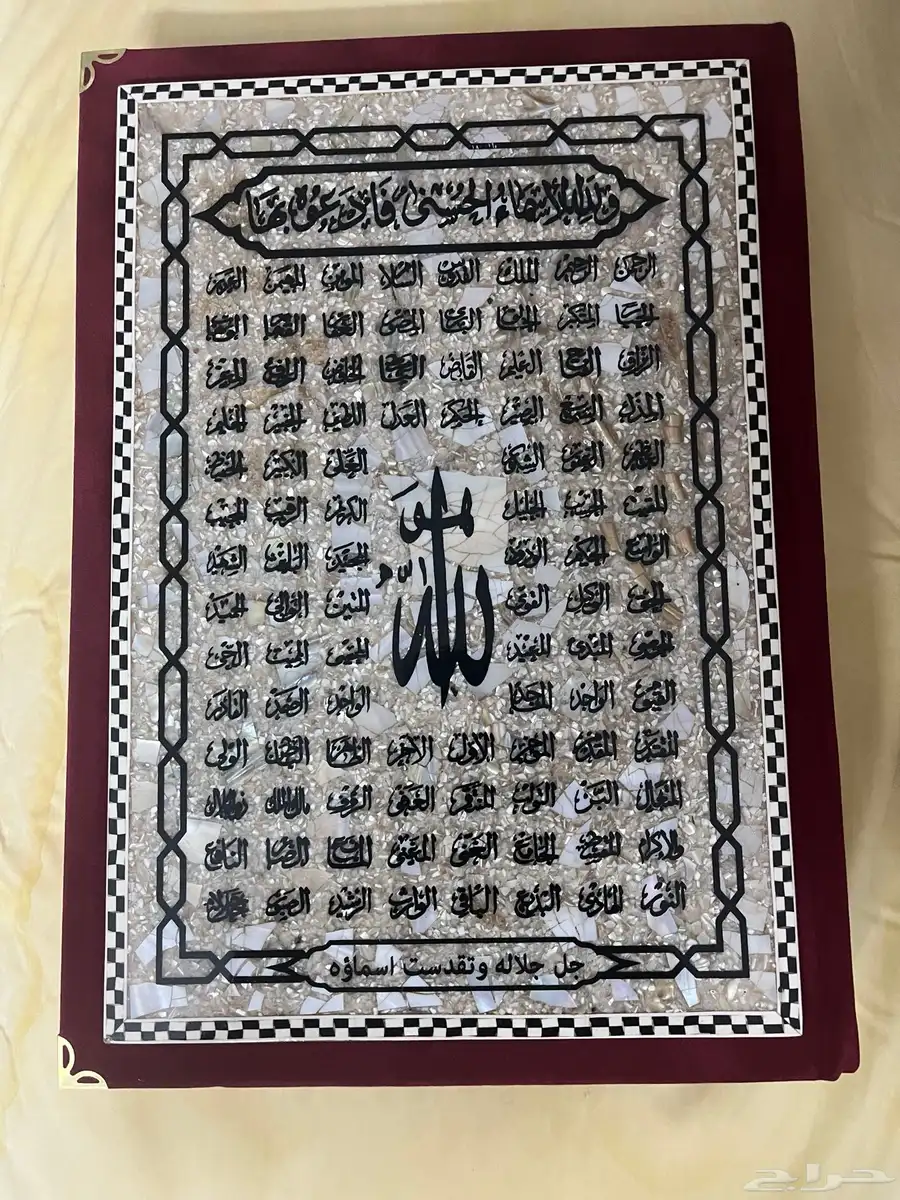 ولله الاسماء الحسنى فادعوه بها
الرحمن الرحيم الملك القدوس السلام المؤمن المهيمن العزيز
الجبار المتكبر الخالق البارئ المصور الغفار القهار الوهاب
الرزاق الفتاح العليم القابض الباسط الخافض الرافع المعز
المذل السميع البصير الحكم العدل اللطيف الخبير الحليم
العظيم الغفور الشكور العلي الكبير الحفيظ
المقيت الحسيب الجليل الكريم الرقيب المجيب
هو الله
الواسع الحكيم الودود المجيد الباعث الشهيد
الحق الوكيل القوي المتين الولي الحميد
المحصي المبدئ المعيد المحيي المميت الحي
القيوم الواجد الماجد الواحد الصمد القادر
المقتدر المقدم المؤخر الأول الآخر الظاهر الباطن الوالي
المتعال البر التواب المنتقم العفو الرؤوف مالك الملك ذو الجلال
والاكرام المقسط الجامع الغني المغني المانع الضار النافع
النور الهادي البديع الباقي الوارث الرشيد الصبور
جل جلاله وتقدست اسماؤه
حراج